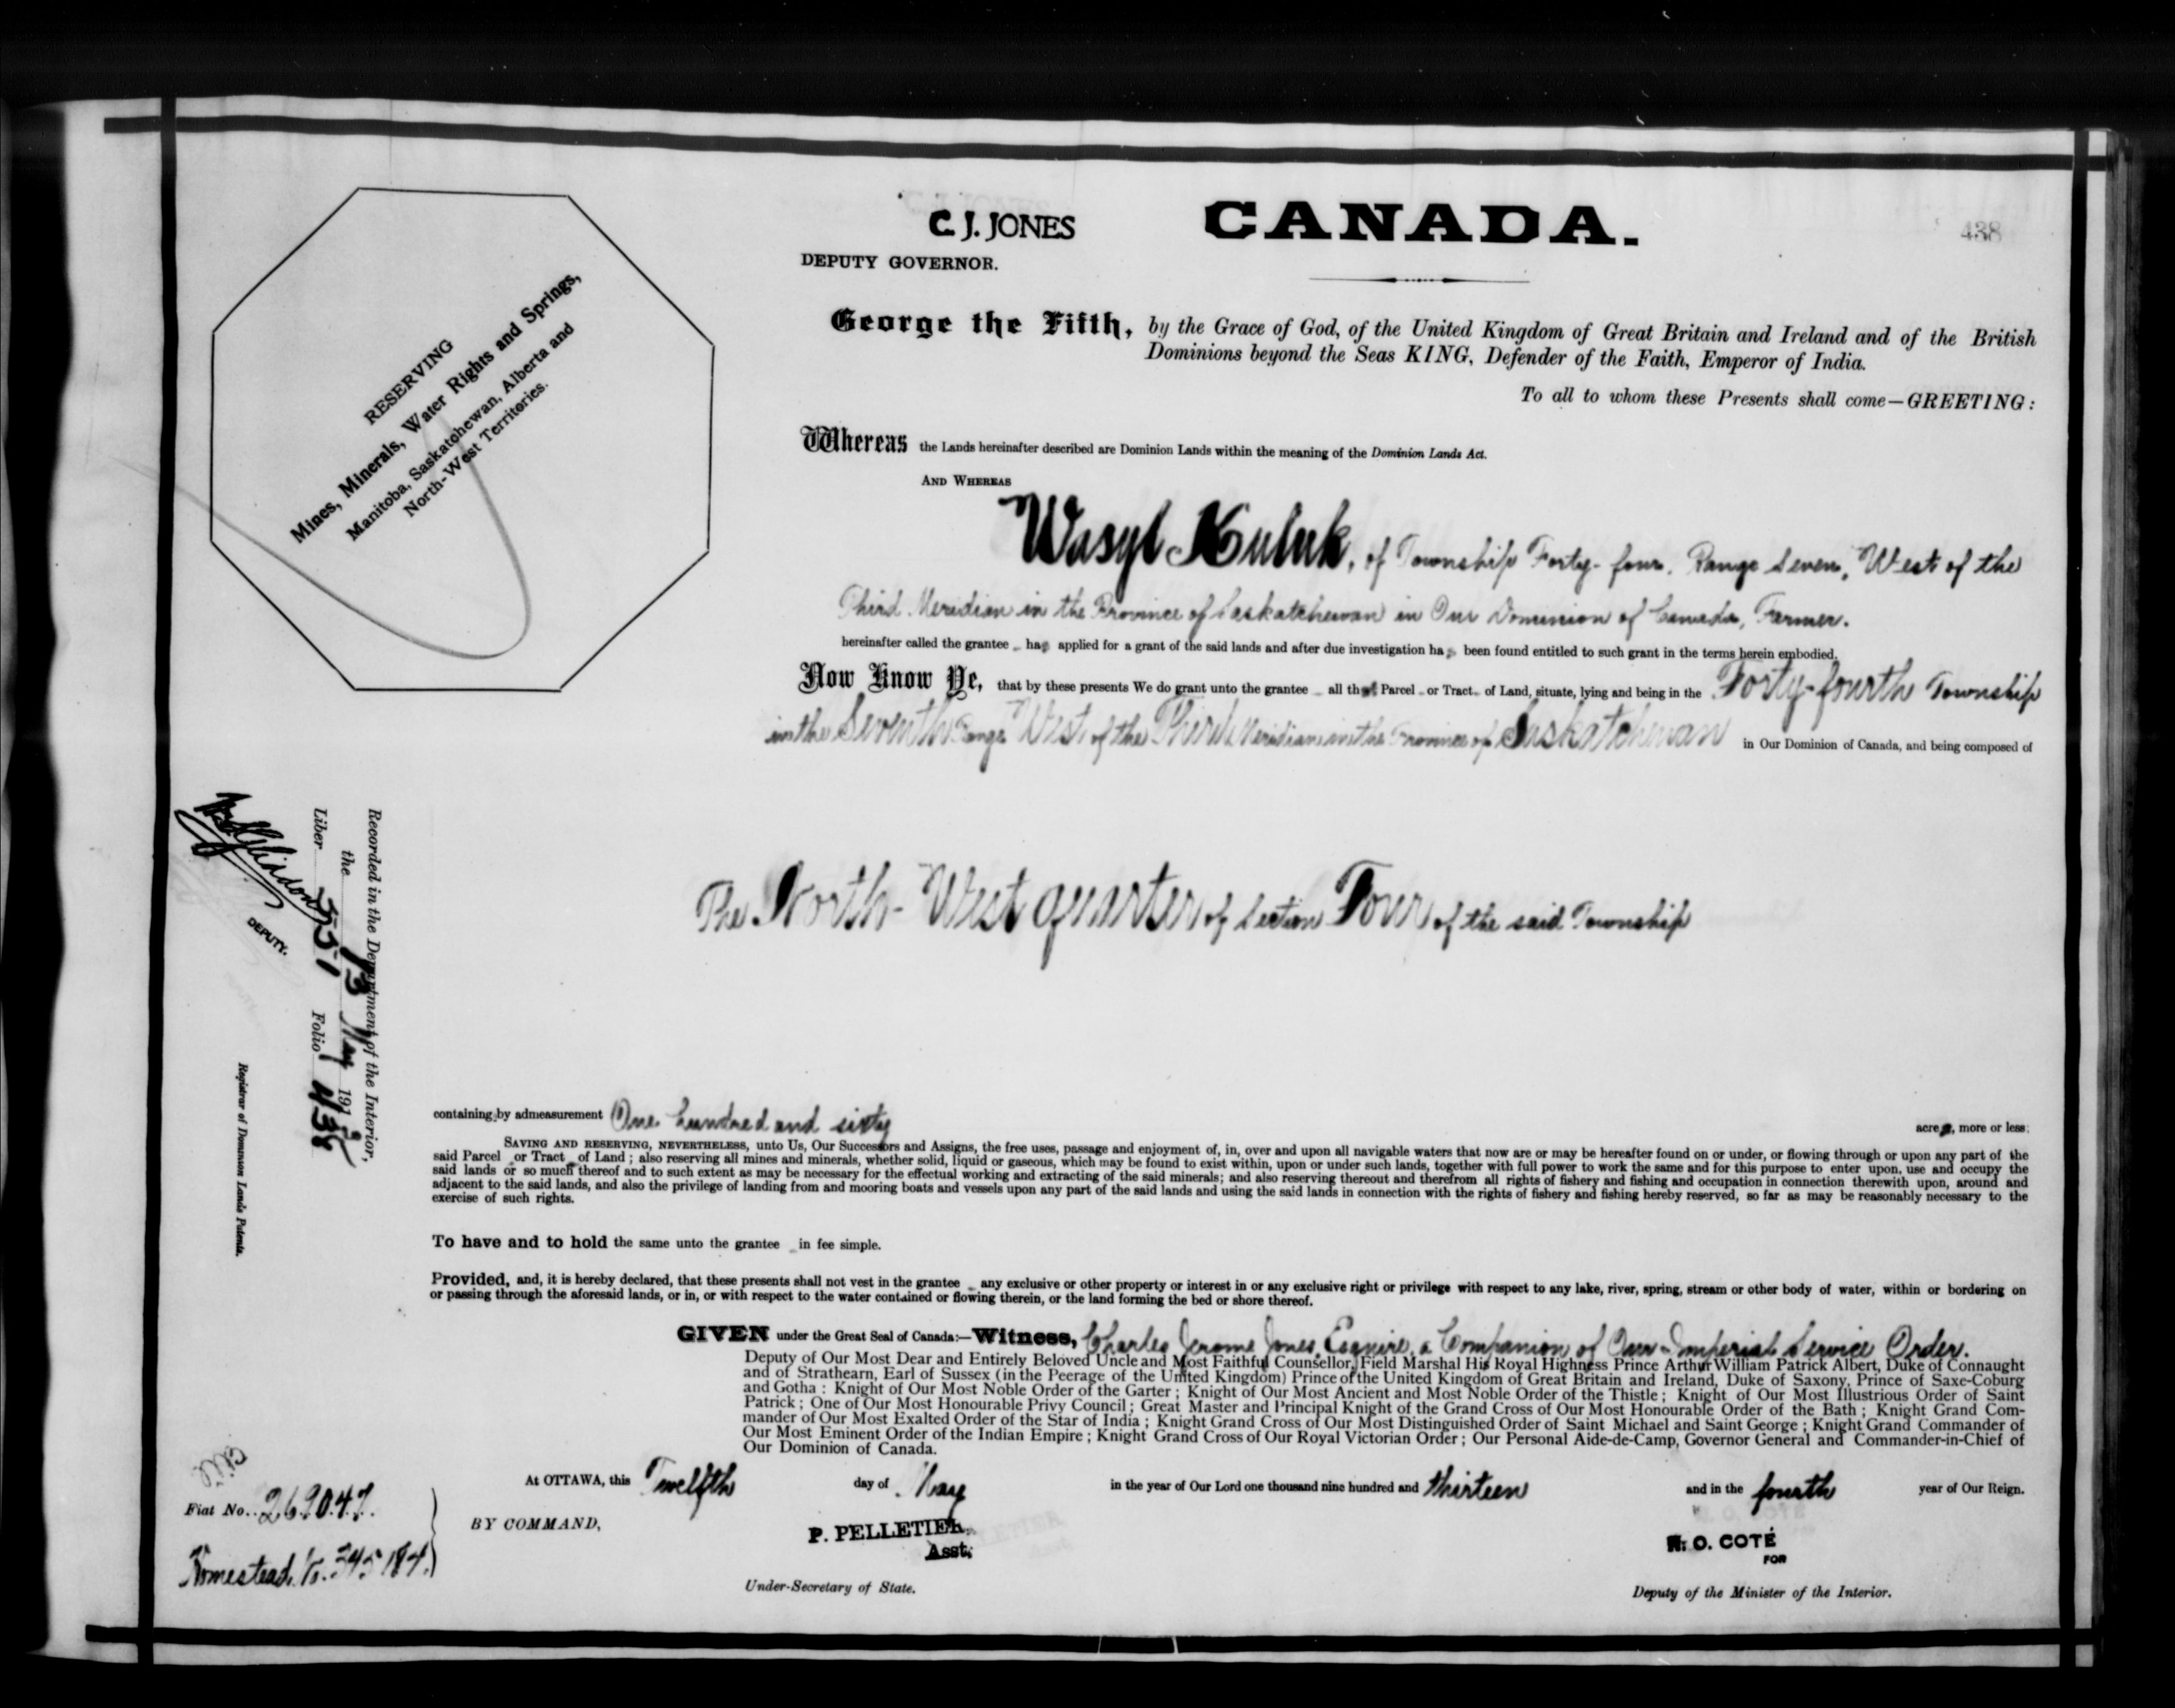 C. J. JONES
CANADA.
438
DEPUTY GOVERNOR.
George the Fifth, by the Grace of God, of the United Kingdom of Great Britain and Ireland and of the British
Dominions beyond the Seas KING, Defender of the Faith, Emperor of India.
To all to whom these Presents shall come—GREETING:
RESERVING
Mines, Minerals, Water Rights and Springs,
Manitoba, Saskatchewan, Alberta and
North-West Territories.
Whereas the Lands hereinafter described are Dominion Lands within the meaning of the Dominion Lands Act.
AND WHEREAS
Wasyl Kuluk, of Township Forty-four, Range Seven, West of the
Third Meridian in the Province of Saskatchewan in Our Dominion of Canada, Farmer.
hereinafter called the grantee has applied for a grant of the said lands and after due investigation has been found entitled to such grant in the terms herein embodied.
Now Know Ye, that by these presents We do grant unto the grantee all that Parcel or Tract of Land, situate, lying and being in the Forty-fourth Township
in the Seventh Range West of the Third Meridian in the Province of Saskatchewan in Our Dominion of Canada, and being composed of
The North-West quarter of Section Four of the said Township
Recorded in the Department of the Interior,
the 13 May 191
Liber 551 Folio 438
DEPUTY.
Registrar of Dominion Lands Patents.
containing by admeasurement One hundred and sixty acres, more or less:
SAVING AND RESERVING, NEVERTHELESS, unto Us, Our Successors and Assigns, the free uses, passage and enjoyment of, in, over and upon all navigable waters that now are or may be hereafter found on or under, or flowing through or upon any part of the
said Parcel or Tract of Land; also reserving all mines and minerals, whether solid, liquid or gaseous, which may be found to exist within, upon or under such lands, together with full power to work the same and for this purpose to enter upon, use and occupy the
said lands or so much thereof and to such extent as may be necessary for the effectual working and extracting of the said minerals; and also reserving thereout and therefrom all rights of fishery and fishing and occupation in connection therewith upon, around and
adjacent to the said lands, and also the privilege of landing from and mooring boats and vessels upon any part of the said lands and using the said lands in connection with the rights of fishery and fishing hereby reserved, so far as may be reasonably necessary to the
exercise of such rights.
To have and to hold the same unto the grantee in fee simple.
Provided, and, it is hereby declared, that these presents shall not vest in the grantee any exclusive or other property or interest in or any exclusive right or privilege with respect to any lake, river, spring, stream or other body of water, within or bordering on
or passing through the aforesaid lands, or in, or with respect to the water contained or flowing therein, or the land forming the bed or shore thereof.
GIVEN under the Great Seal of Canada:—Witness, Charles Jerome Jones, Esquire, a Companion of Our Imperial Service Order.
Deputy of Our Most Dear and Entirely Beloved Uncle and Most Faithful Counsellor, Field Marshal His Royal Highness Prince Arthur William Patrick Albert, Duke of Connaught
and of Strathearn, Earl of Sussex (in the Peerage of the United Kingdom) Prince of the United Kingdom of Great Britain and Ireland, Duke of Saxony, Prince of Saxe-Coburg
and Gotha: Knight of Our Most Noble Order of the Garter; Knight of Our Most Ancient and Most Noble Order of the Thistle; Knight of Our Most Illustrious Order of Saint
Patrick; One of Our Most Honourable Privy Council; Great Master and Principal Knight of the Grand Cross of Our Most Honourable Order of the Bath; Knight Grand Com-
mander of Our Most Exalted Order of the Star of India; Knight Grand Cross of Our Most Distinguished Order of Saint Michael and Saint George; Knight Grand Commander of
Our Most Eminent Order of the Indian Empire; Knight Grand Cross of Our Royal Victorian Order; Our Personal Aide-de-Camp, Governor General and Commander-in-Chief of
Our Dominion of Canada.
At OTTAWA, this Twelfth day of May in the year of Our Lord one thousand nine hundred and thirteen and in the fourth year of Our Reign.
Fiat No. 269047.
BY COMMAND,
P. PELLETIER.
Asst.
N. O. COTÉ
FOR
Homestead. No. 345184.
Under-Secretary of State.
Deputy of the Minister of the Interior.